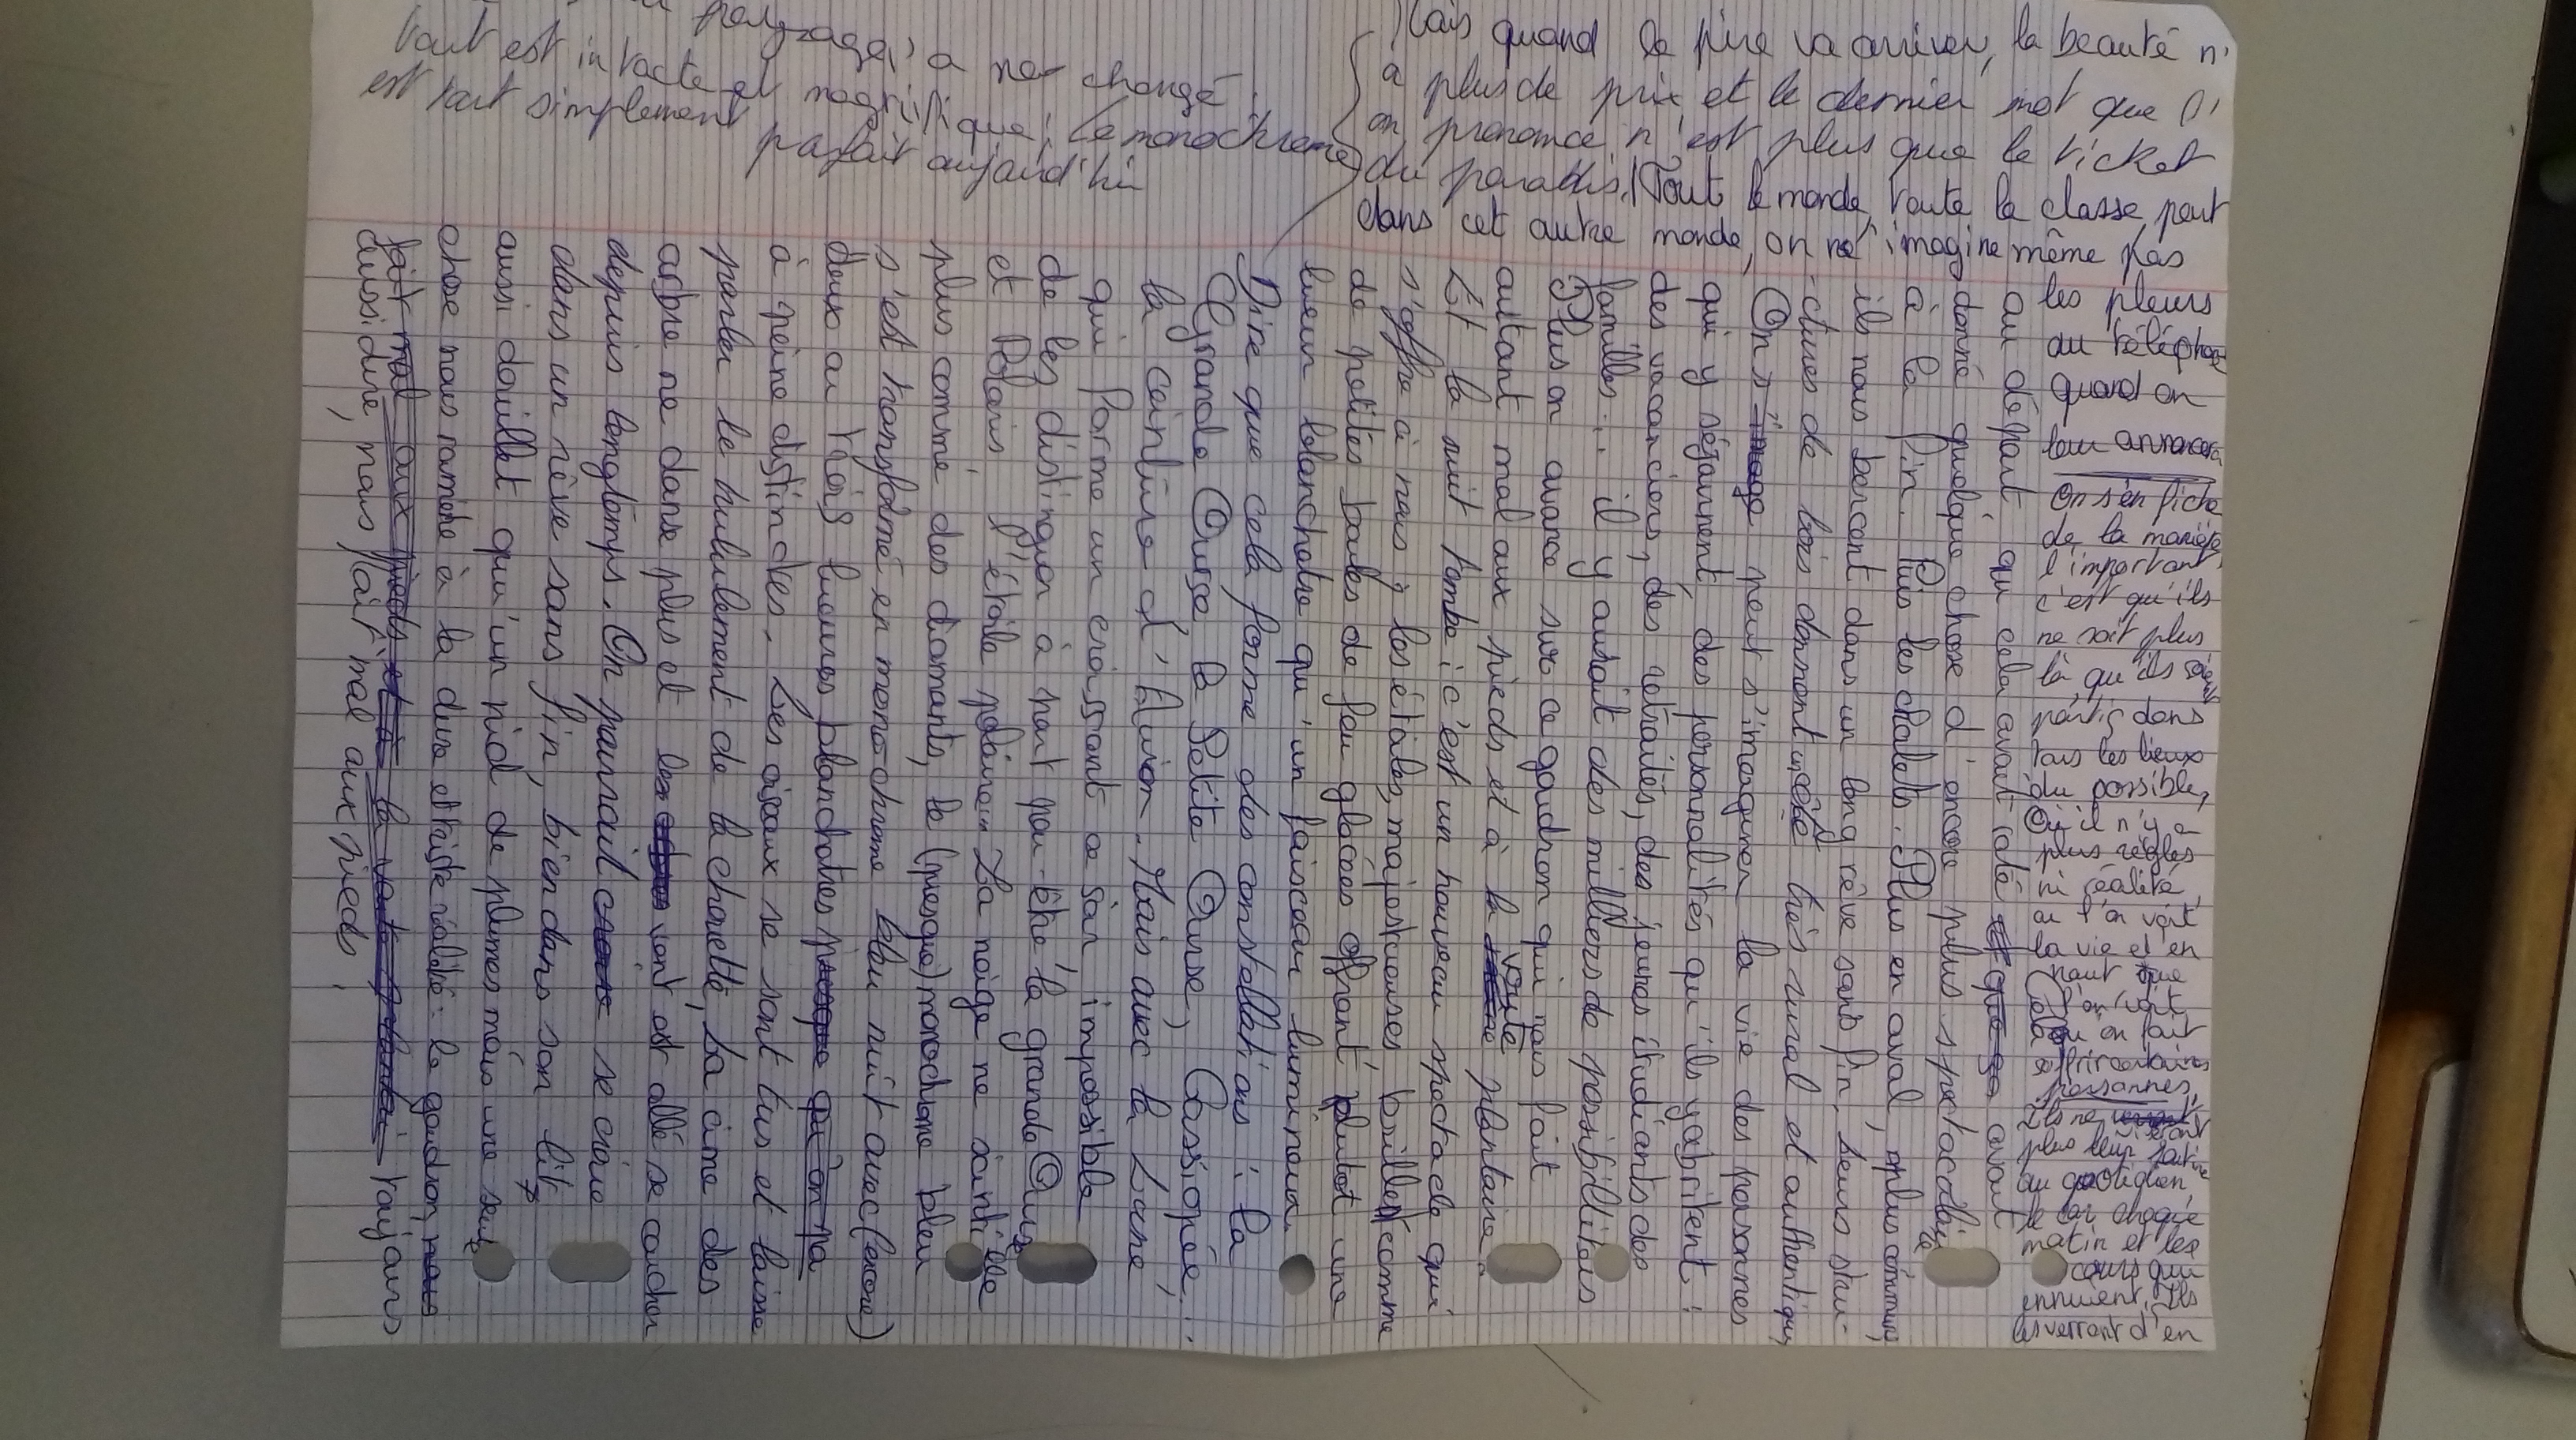 au départ, qui cela avait côté avait
donné quelque chose d'encore plus spectaculaire
à la fin. Puis les chalets. Plus en aval, plus commun,
ils nous bercent dans un long rêve sans fin, leurs stru-
-ctures de bois donnent un côté très rural et authentique,
On image peut s'imaginer la vie des personnes
qui y séjournent, des personnalités qu'ils y abritent :
des vacanciers, des retraités, des jeunes étudiants, des
familles... il y aurait des milliers de possibilités
Plus on avance sur ce goudron qui nous fait
autant mal aux pieds et à la voute plantaire.
Et la nuit tombe : c'est un nouveau spectacle qui
s'offre à nous ; les étoiles, majestueuses, brillent comme
de petites boules de feu glacées offrant plutot une
lueur blanchatre qu'un faisceau lumineux.
Dire que cela forme des constellations : la
Grande Ourse, la Petite Ourse, Cassiopée...
la ceinture d'Orion. Mais avec la Lune,
qui forme un croissant ce soir impossible
de les distinguer à part peu-être la grande Ourse
et Polaris l'étoile polaire. La neige ne scintille
plus comme des diamants, le (presque) monochrome bleu
s'est transformé en monochrome bleu nuit avec (encore)
deux ou trois lueures blanchatres presque qui on pa
à peine distinctes. Les oiseaux se sont tus et laisse
parler le hululement de la chouette, La cime des
arbre ne danse plus et les vent est allé se coucher
depuis longtemps. On pourrait se croire
dans un rêve sans fin, bien dans son lit
aussi douillet qu'un nid de plumes mais une seule
chose nous ramène à la dure et triste réalité : le goudron, nous
fait mal aux pieds et à la voute plantai toujours
aussi dure, nous fait mal aux pieds.
paysage, a
changé.
tout est intacte et magnifique, le monochrome
est tout simplement parfait aujourd'hui
Mais quand le pire va arriver, la beauté n'
a plus de prix et le dernier mot que l'
on prononce n'est plus que le ticket
du paradis. Tout le monde, toute la classe, peut
dans cet autre monde, on n'imagine même pas
les pleurs
au téléphone
quand on
leur annoncera
On s'en fiche
de la manière
l'important,
c'est qu'ils
ne soit plus
là, qu'ils soient
partis dans
tous les lieux
du possible,
Où il n'y a
plus règles
ni réalité,
ou l'on voit
la vie d'en
haut que
l'on voit
qu'on fait
souffrir certaines
personnes,
Ils ne
plus leur
au quotidien,
le car chaque
matin et les
cours qui
ennuient. Ils
les verront d'en